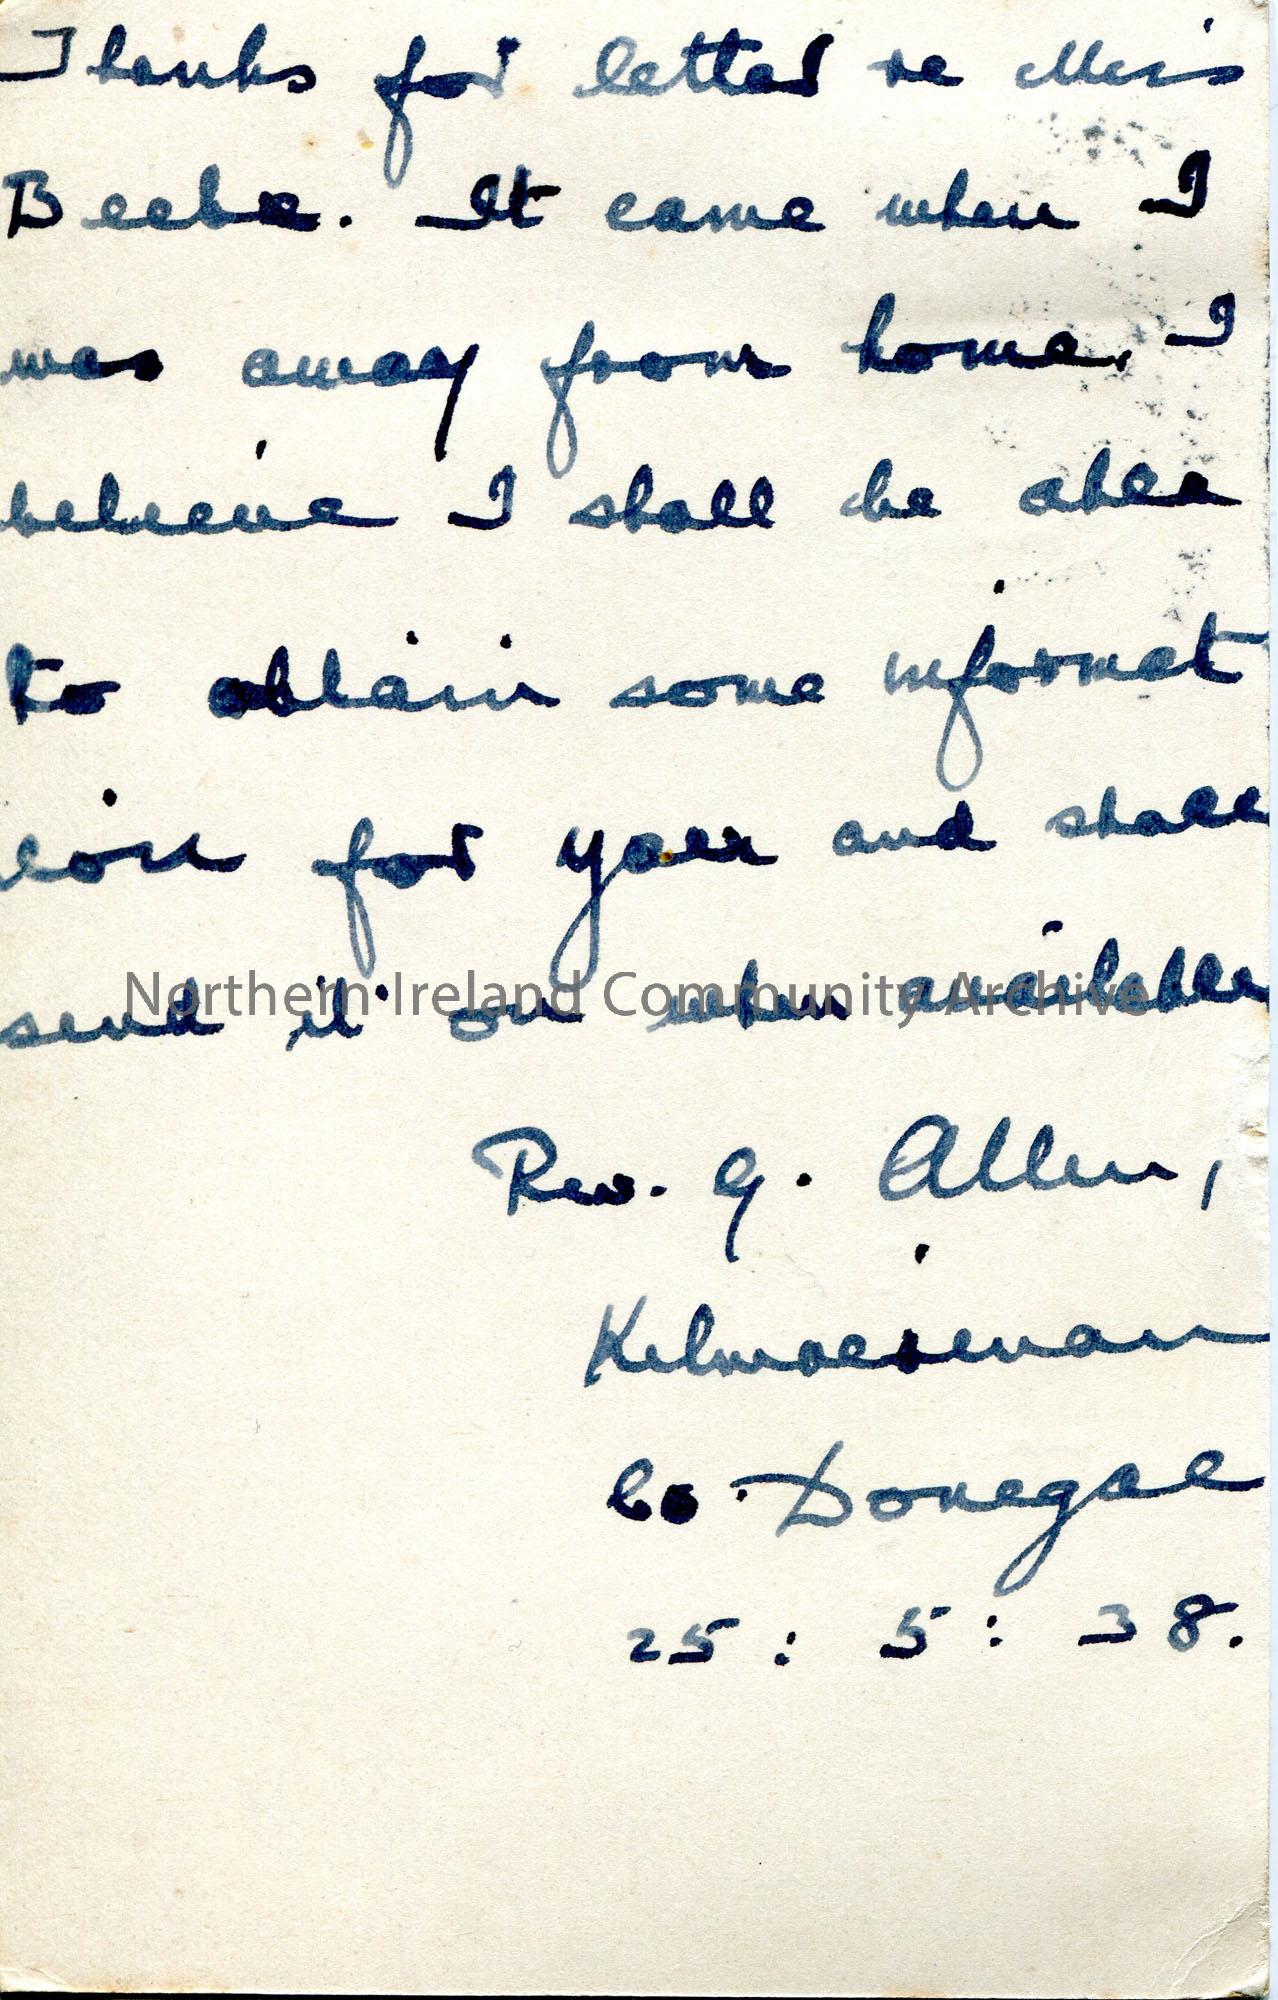 Thanks for letter re Miss
Beebe. It came when I
was away from home. I
believe I shall be able
to obtain some informat
ion for you and shall
send it on when available
Northern Ireland Community Archive
Rev. G. Allen,
Kilmacrenan
Co. Donegal
25 : 5 : 38.